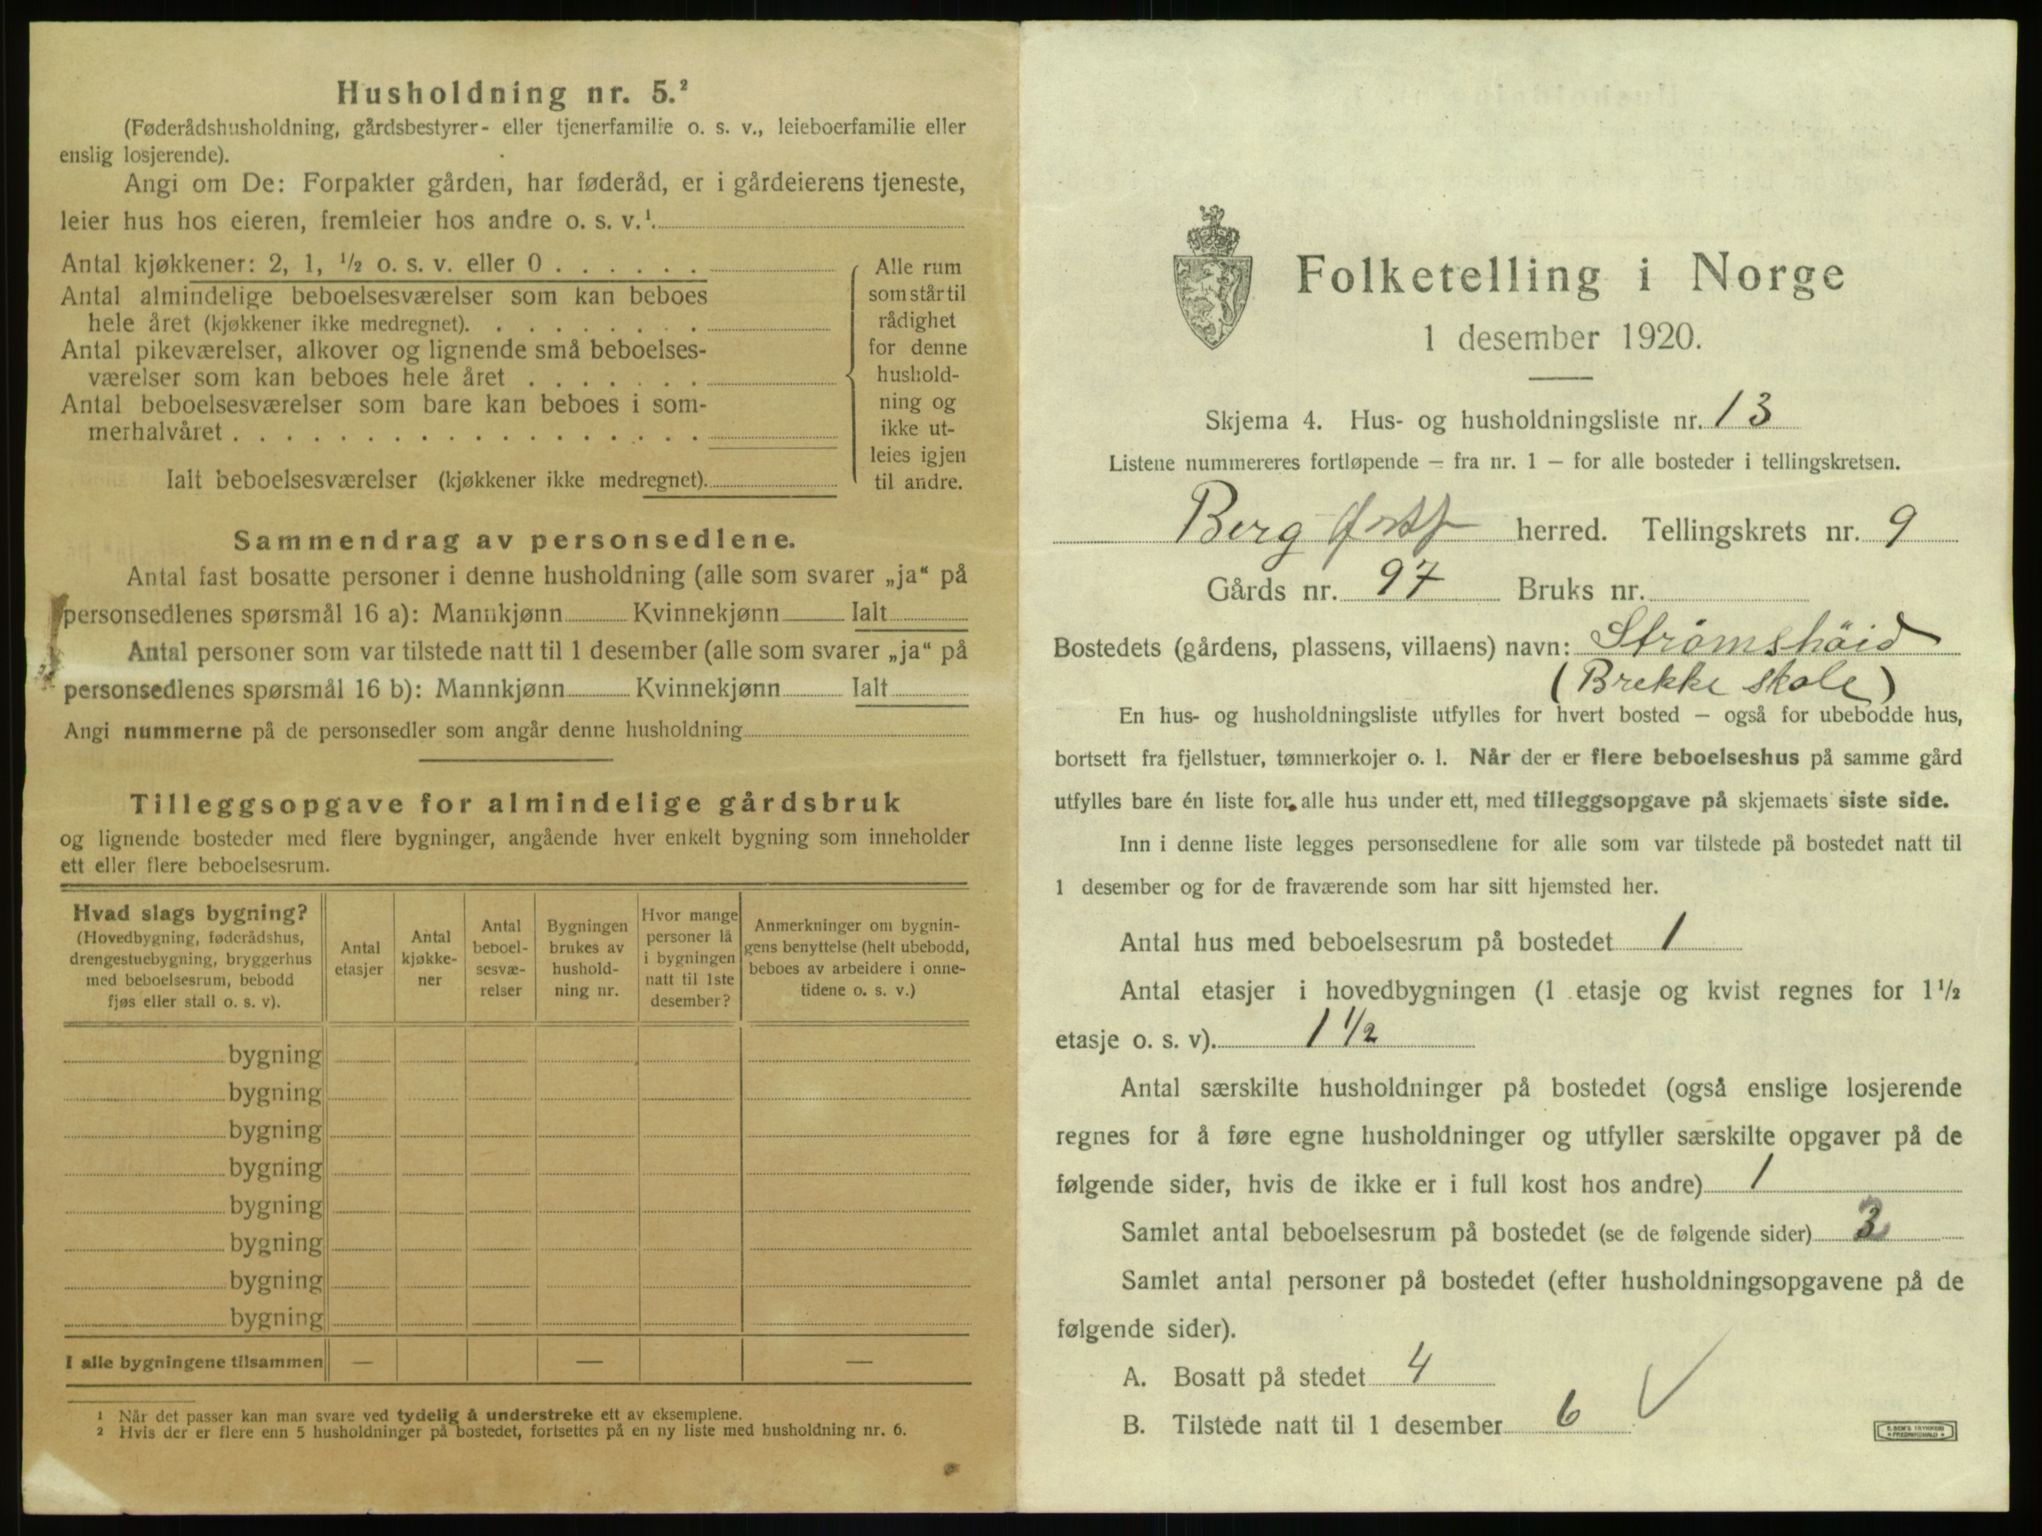 Husholdning nr. 5.²
(Føderådshusholdning, gårdsbestyrer- eller tjenerfamilie o. s. v., leieboerfamilie eller
enslig losjerende).
Angi om De: Forpakter gården, har føderåd, er i gårdeierens tjeneste,
leier hus hos eieren, fremleier hos andre o. s. v.¹
Antal kjøkkener: 2, 1, ½ o. s. v. eller 0 . . . . . .
Antal almindelige beboelsesværelser som kan beboes
hele året (kjøkkener ikke medregnet). . . . . . . . .
Antal pikeværelser, alkover og lignende små beboelses-
værelser som kan beboes hele året . . . . . . .
Antal beboelsesværelser som bare kan beboes i som-
merhalvåret . . . . . . . . . . . . . . . . . .
Ialt beboelsesværelser (kjøkkener ikke medregnet).
Alle rum
som står til
rådighet
for denne
hushold-
ning og
ikke ut-
leies igjen
til andre.
Sammendrag av personsedlene.
Antal fast bosatte personer i denne husholdning (alle som svarer „ja“ på
personsedlenes spørsmål 16 a): Mannkjønn Kvinnekjønn Ialt
Antal personer som var tilstede natt til 1 desember (alle som svarer „ja“ på
personsedlenes spørsmål 16 b): Mannkjønn Kvinnekjønn Ialt
Angi nummerne på de personsedler som angår denne husholdning
Tilleggsopgave for almindelige gårdsbruk
og lignende bosteder med flere bygninger, angående hver enkelt bygning som inneholder
ett eller flere beboelsesrum.
Hvad slags bygning?
(Hovedbygning, føderådshus,
drengestuebygning, bryggerhus
med beboelsesrum, bebodd
fjøs eller stall o. s. v).
Antal
etasjer
Antal
kjøkke-
ner
Antal
beboel-
sesvæ-
relser
Bygningen
brukes av
hushold-
ning nr.
Hvor mange
personer lå
i bygningen
natt til 1ste
desember?
Anmerkninger om bygnin-
gens benyttelse (helt ubebodd,
beboes av arbeidere i onne-
tidene o. s. v.)
bygning
bygning
bygning
bygning
bygning
bygning
bygning
bygning
I alle bygningene tilsammen — — —
¹ Når det passer kan man svare ved tydelig å understreke ett av eksemplene.
² Hvis der er flere enn 5 husholdninger på bostedet, fortsettes på en ny liste med husholdning nr. 6.
Folketelling i Norge
1 desember 1920.
Skjema 4. Hus- og husholdningsliste nr. 13
Listene nummereres fortløpende – fra nr. 1 – for alle bosteder i tellingskretsen.
Berg Østf herred. Tellingskrets nr. 9
Gårds nr. 97 Bruks nr.
Bostedets (gårdens, plassens, villaens) navn: Strømshöid
(Brekke skole)
En hus- og husholdningsliste utfylles for hvert bosted – også for ubebodde hus,
bortsett fra fjellstuer, tømmerkojer o. l. Når der er flere beboelseshus på samme gård
utfylles bare én liste for alle hus under ett, med tilleggsopgave på skjemaets siste side.
Inn i denne liste legges personsedlene for alle som var tilstede på bostedet natt til
1 desember og for de fraværende som har sitt hjemsted her.
Antal hus med beboelsesrum på bostedet 1
Antal etasjer i hovedbygningen (1 etasje og kvist regnes for 1½
etasje o. s. v). 1½
Antal særskilte husholdninger på bostedet (også enslige losjerende
regnes for å føre egne husholdninger og utfyller særskilte opgaver på de
følgende sider, hvis de ikke er i full kost hos andre) 1
Samlet antal beboelsesrum på bostedet (se de følgende sider)
Samlet antal personer på bostedet (efter husholdningsopgavene på de
følgende sider).
A. Bosatt på stedet 4
B. Tilstede natt til 1 desember 6